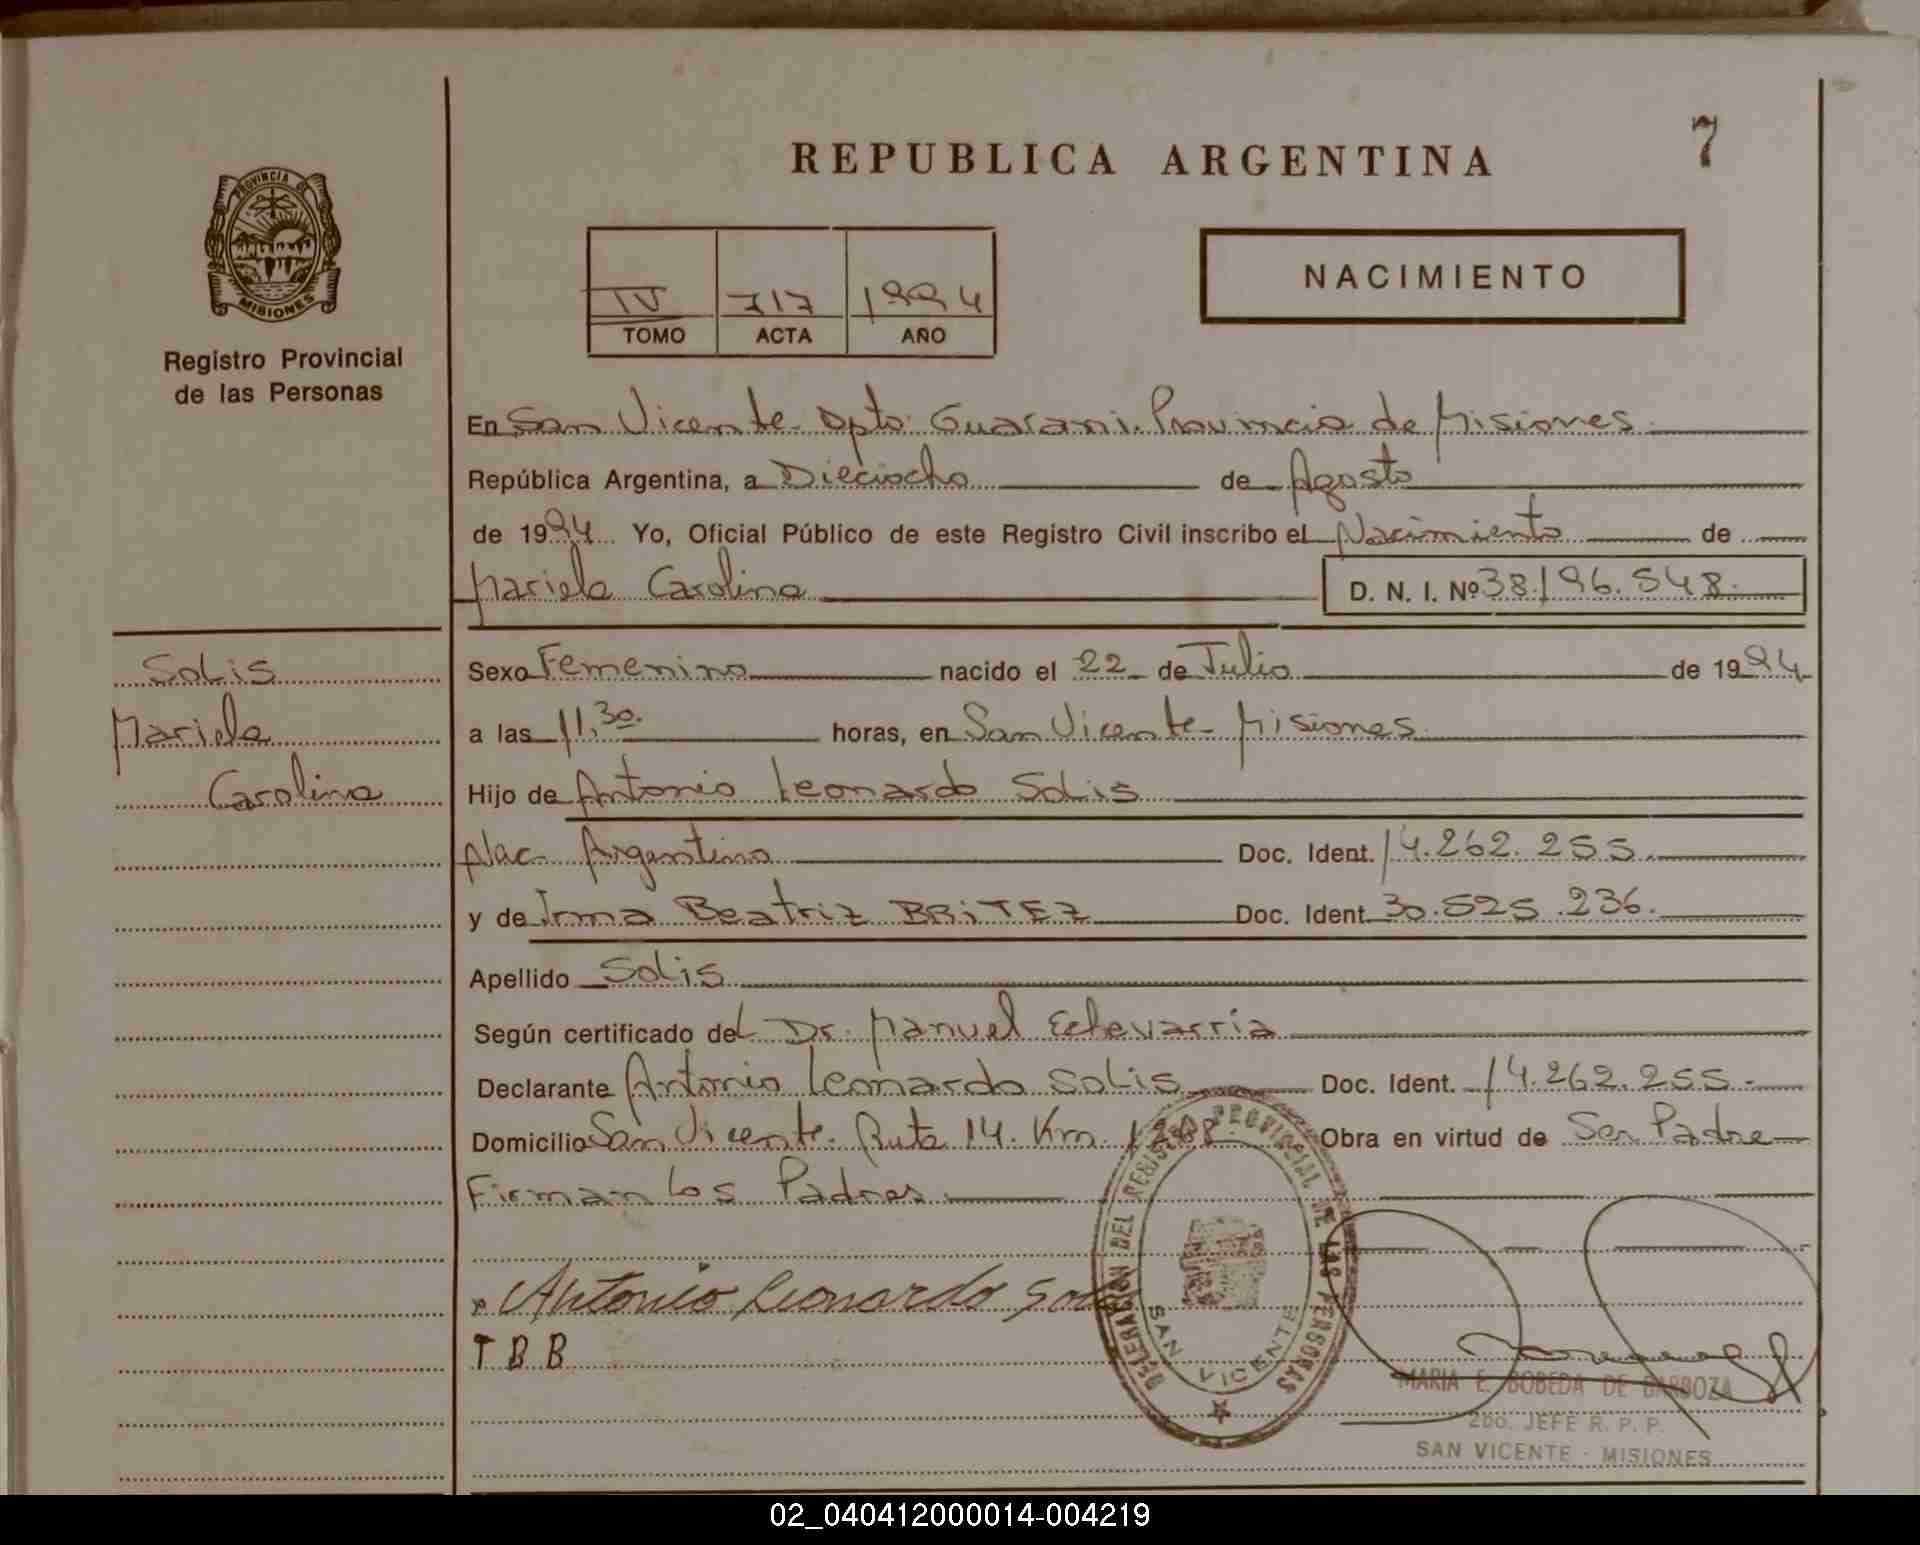 7
REPUBLICA ARGENTINA
PROVINCIA DE
MISIONES
Registro Provincial
de las Personas
NACIMIENTO
IV 717 1994
TOMO ACTA AÑO
En San Vicente Dpto: Guarani. Provincia de Misiones
República Argentina, a Dieciocho de Agosto
de 1994 Yo, Oficial Público de este Registro Civil inscribo el Nacimiento de
Mariela Carolina D. N. I. Nº 38.196.548.
Solis
Mariela
Carolina
Sexo Femenino nacido el 22 de Julio de 1994
a las 11,30. horas, en San Vicente - Misiones
Hijo de Antonio Leonardo Solis
Nac. Argentino Doc. Ident. 14.262.255.
y de Irma Beatriz BRITEZ Doc. Ident. 30.525.236.
Apellido Solis
Según certificado del Dr. Manuel Echevarria
Declarante Antonio Leonardo Solis Doc. Ident. 14.262.255.
Domicilio San Vicente. Ruta 14. Km. Obra en virtud de Ser Padre
Firman los Padres
Antonio Leonardo Solis
I B B
DELEGACION DEL REGISTRO PROVINCIAL DE LAS PERSONAS
SAN VICENTE
MARIA E. BOBEDA DE BARBOZA
2do. JEFE R. P. P.
SAN VICENTE - MISIONES
02_040412000014-004219